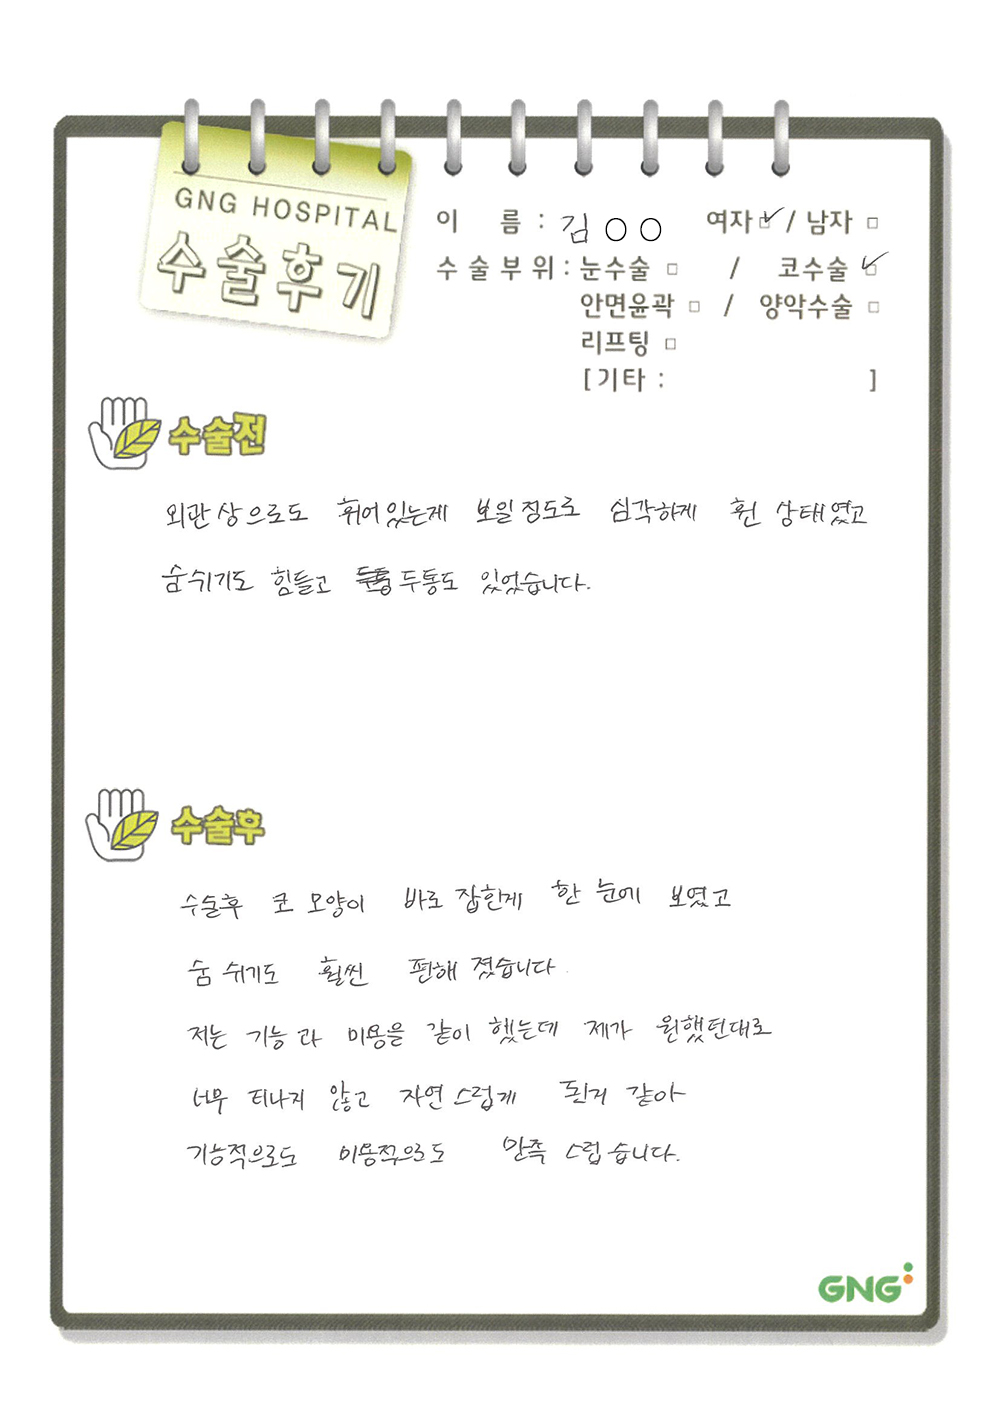 GNG HOSPITAL
수술후기
이 름 : 김 ○ ○ 여자 ☑ / 남자 □
수술부위 : 눈수술 □ / 코수술 ☑
안면윤곽 □ / 양악수술 □
리프팅 □
[기타 : ]
수술전
외관상으로도 휘어있는게 보일정도로 심각하게 휜 상태였고
숨쉬기도 힘들고 두통도 있었습니다.
수술후
수술후 코 모양이 바로 잡힌게 한 눈에 보였고
숨 쉬기도 훨씬 편해 졌습니다.
저는 기능과 미용을 같이 했는데 제가 원했던대로
너무 티나지 않고 자연스럽게 된거 같아
기능적으로도 미용적으로도 만족 스럽습니다.
GNG